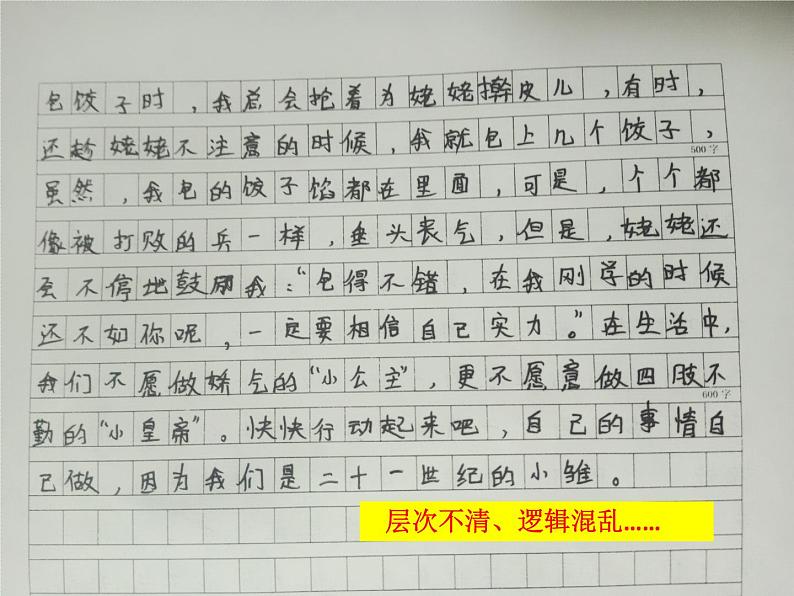 包饺子时，我总会抢着为姥姥擀皮儿，有时，
还趁姥姥不注意的时候，我就包上几个饺子，
500字
虽然，我包的饺子馅都在里面，可是，个个都
像被打败的兵一样，垂头丧气，但是，姥姥还
会不停地鼓励我：“包得不错，在我刚学的时候
还不如你呢，一定要相信自己实力。”在生活中，
我们不愿做娇气的“小公主”，更不愿意做四肢不
600字
勤的“小皇帝”。快快行动起来吧，自己的事情自
己做，因为我们是二十一世纪的小雏。
层次不清、逻辑混乱……